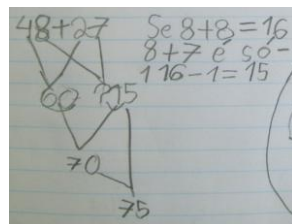 48+27
60 15
70
75
Se 8+8=16
8+7 é só-
1 16-1=15